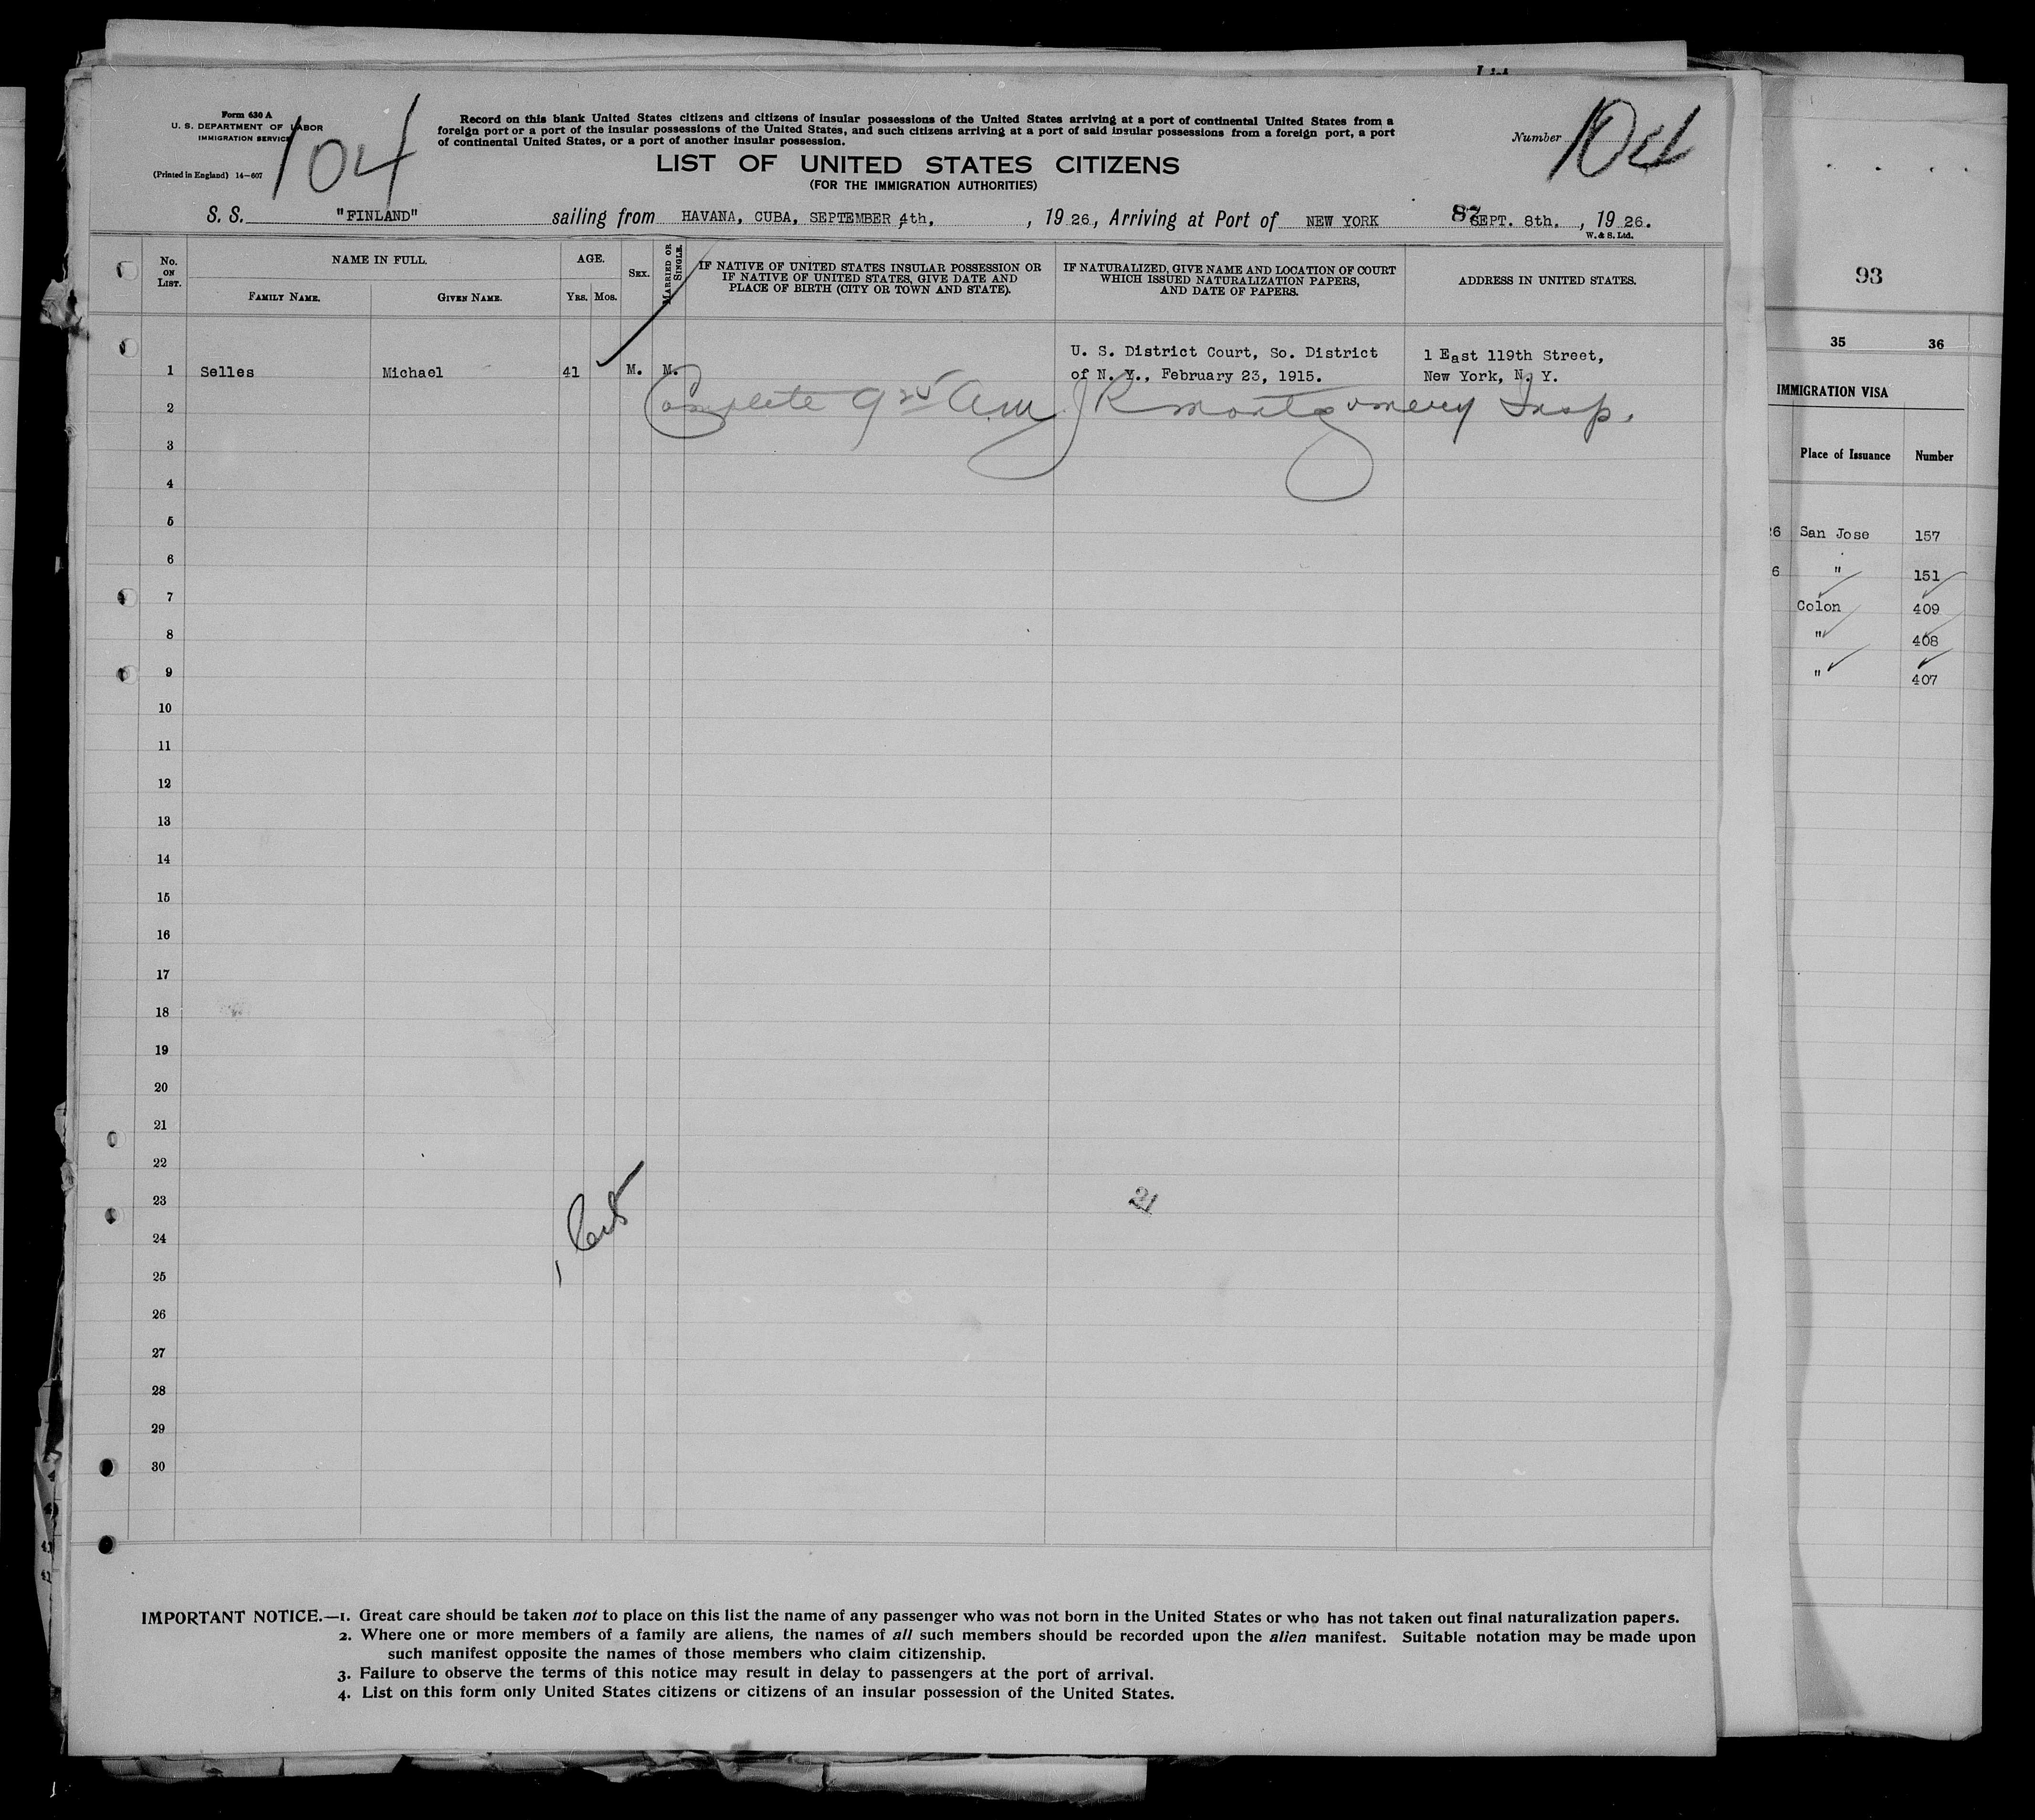 Form 630 A
U. S. DEPARTMENT OF LABOR
IMMIGRATION SERVICE
(Printed in England) 14—607
104
Record on this blank United States citizens and citizens of insular possessions of the United States arriving at a port of continental United States from a
foreign port or a port of the insular possessions of the United States, and such citizens arriving at a port of said insular possessions from a foreign port, a port
of continental United States, or a port of another insular possession.
Number
LIST OF UNITED STATES CITIZENS
(FOR THE IMMIGRATION AUTHORITIES)
S. S. "FINLAND" sailing from HAVANA, CUBA, SEPTEMBER 4th, , 19 26, Arriving at Port of NEW YORK SEPT. 8th. , 19 26.
W. & S. Ltd.
No. ON LIST.
NAME IN FULL.
FAMILY NAME.
GIVEN NAME.
AGE.
YRS.
MOS.
SEX.
MARRIED OR SINGLE.
IF NATIVE OF UNITED STATES INSULAR POSSESSION OR
IF NATIVE OF UNITED STATES, GIVE DATE AND
PLACE OF BIRTH (CITY OR TOWN AND STATE).
IF NATURALIZED, GIVE NAME AND LOCATION OF COURT
WHICH ISSUED NATURALIZATION PAPERS,
AND DATE OF PAPERS.
ADDRESS IN UNITED STATES.
U. S. District Court, So. District 1 East 119th Street,
1 Selles Michael 41 M. M. of N. Y., February 23, 1915. New York, N. Y.
2 Complete 9 25 A.M. J R Montgomery Insp.
3
4
5
6
7
8
9
10
11
12
13
14
15
16
17
18
19
20
21
22
23 21
24
25
26
27
28
29
30
IMPORTANT NOTICE.—1. Great care should be taken not to place on this list the name of any passenger who was not born in the United States or who has not taken out final naturalization papers.
2. Where one or more members of a family are aliens, the names of all such members should be recorded upon the alien manifest. Suitable notation may be made upon
such manifest opposite the names of those members who claim citizenship.
3. Failure to observe the terms of this notice may result in delay to passengers at the port of arrival.
4. List on this form only United States citizens or citizens of an insular possession of the United States.
93
35 36
IMMIGRATION VISA
Place of Issuance Number
6 San Jose 157
6 " 151
Colon 409
" 408
" 407